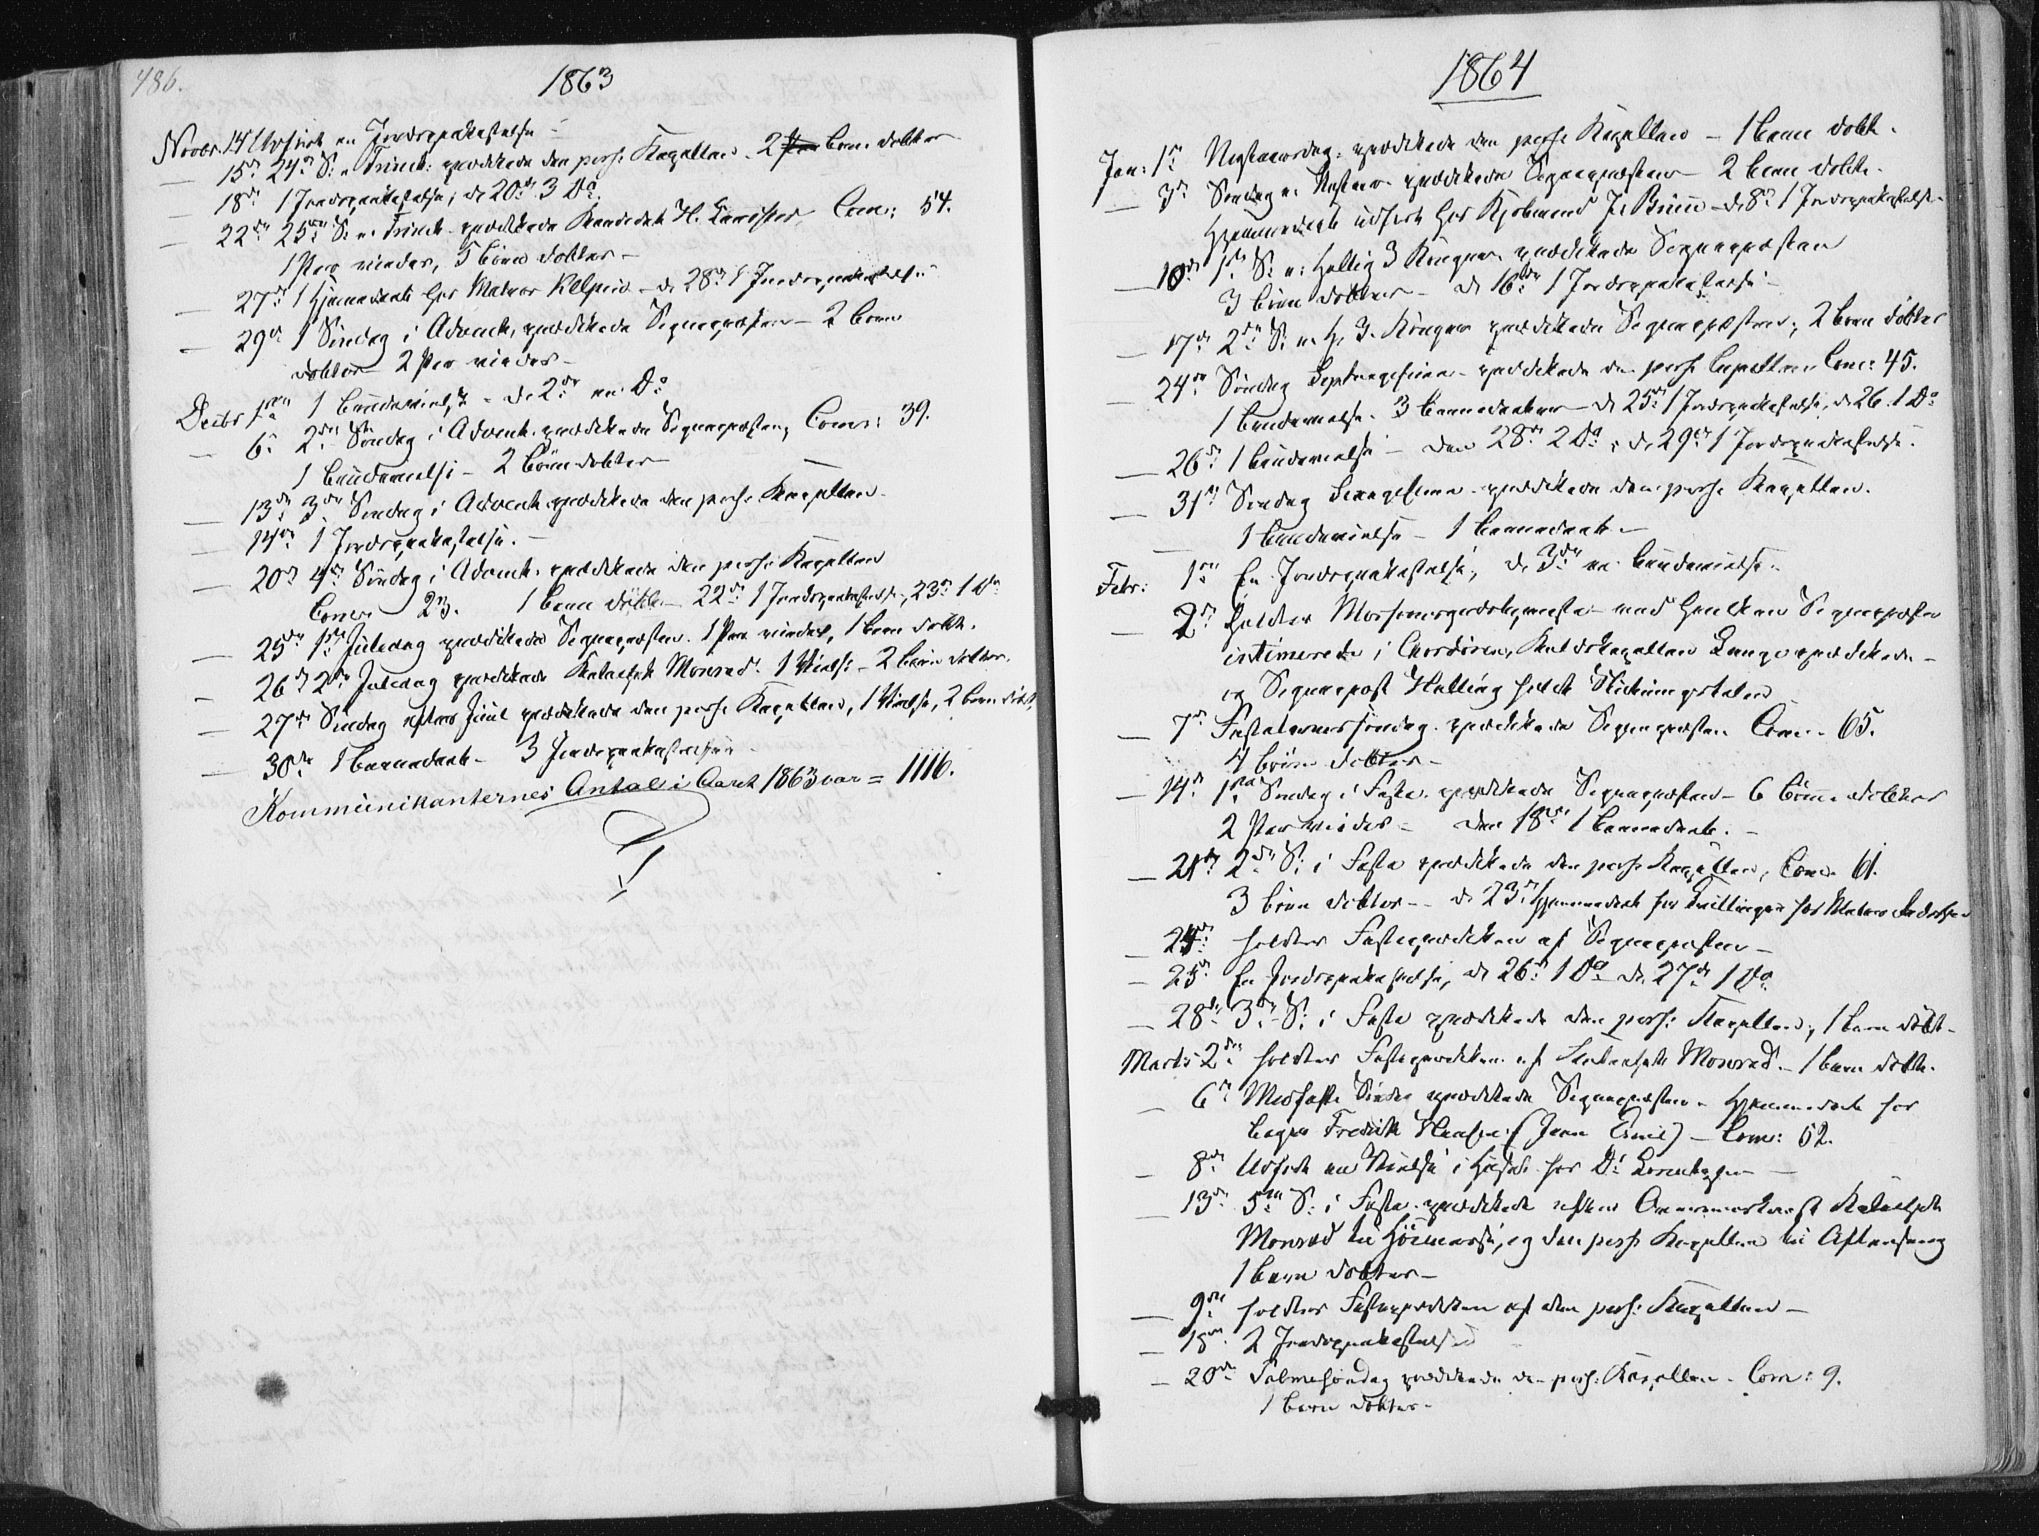 486.
1863
Novbr. 14 Udført en Jordspaakastelse –
— 15de 24de S: e. Trinit: prædikede den pers: Kapellan. 2 Børn døbtes
— 18de 1 Jordspaakastelse; de 20de 3 Do.
— 22de 25de S: e. Trinit. prædikede Kandidat H. Com: 54.
1 Par viedes, 5 børn døbtes –
— 27de 1 Hjemmedaab hos Matros – de 28de 1 Jordspaakastelse
— 29de 1 Søndag i Advent, prædikede Sognepræsten – 2 børn
døbtes – 2 Par viedes –
Decbr 1ste 1 – de 2de en Do
— 6te 2den Søndag i Advent. prædikede Sognepræsten, Com: 39.
1 – 2 børn døbtes –
— 13de 3die Søndag i Advent prædikede den pers: Kapellan.
— 14de 1 Jordspaakastelse. –
— 20de 4de Søndag i Advent. prædikede den pers: Kapellan
Com: 23. 1 barn døbt – 22de 1 Jordspaakastelse, 23de 1 Do
— 25de 1ste Juledag prædikede Sognepræsten. 1 Par viedes, 1 barn døbt.
— 26de 2den Juledag prædikede Katechet Monrad. 1 Vielse – 2 børn døbtes.
— 27de Søndag efter Juul prædikede den pers: Kapellan, 1 Vielse, 2 børn døbt,
— 30de 1 barnedaab – 3 Jordspaakastelser
Kommunikanternes Antal i Aaret 1863 var = 1116.
1864
Jan: 1ste Nytaarsdag. prædikede den pers: Kapellan – 1 barn døbt.
— 3de Søndag e. Nytaar prædikede Sognepræsten – 2 børn døbte.
Hjemmedaab udført hos Kjøbmand J. – de 8de 1 Jordspaakastelse.
— 10de 1ste S: e: Hellig 3 Konger. prædikede Sognepræsten
3 børn døbtes – de 16de 1 Jordspaakastelse –
— 17de 2den S: e. H. 3. Konger prædikede Sognepræsten, 2 børn døbtes
— 24de Søndag Septuagesima – prædikede den pers: Capellan Com: 45.
1 3 barnedaaber – de 25de 1 Jordspaakastelse, de 26. 1 Do
— 26de 1 – den 28de 2 Do, de 29de 1 Jordspaakastelse.
— 31te Søndag Sexagesima. prædikede den pers: Kapellan.
1 – 1 barnedaab –
Febr: 1ste En Jordspaakastelse, de 3die en
— 2den holdtes med hvilken Sognepræsten
intimerede i Chordøren, Kapellan Lange prædikede –
og Sognepræst Halling holdt
— 7de Fastelavnssøndag. prædikede Sognepræsten Com. 65.
4 børn døbtes –
— 14de 1ste Søndag i Faste. prædikede Sognepræsten – 6 børn døbtes
2 Par viedes – den 18de 1 barnedaab. –
— 21de 2den S: i Faste prædikede den pers: Kapellan, Com. 61.
3 børn døbtes – de 23de Hjemmedaab for Tvillinger hos Matros
— 24de holdtes Fasteprædiken af Sognepræsten –
— 25de En Jordspaakastelse, de 26de 1 Do de 27de 1 Do.
— 28de 3die S: i Faste prædikede den pers: Kapellan, 1 barn døbt –
Marts 2den holdtes Fasteprædiken af Katechet Monrad. – 1 barn døbt.
— 6te Midfaste Søndag prædikede Sognepræsten – Hjemmedaab hos
bager Fredrik Hansen (Jean Emil) – Com: 52.
— 8de Udført en Vielse i Huset hos Dr
— 13de 5te S: i Faste. prædikede efter Katechet
Monrad til Høimesse, og den pers: Kapellan til Aftensang
1 barn døbtes –
— 9de holdtes Fasteprædiken af den pers: Kapellan –
— 18de 2 Jordspaakastelser
— 20de Palmesøndag prædikede den pers: Kapellan – Com: 9.
1 barn døbtes –